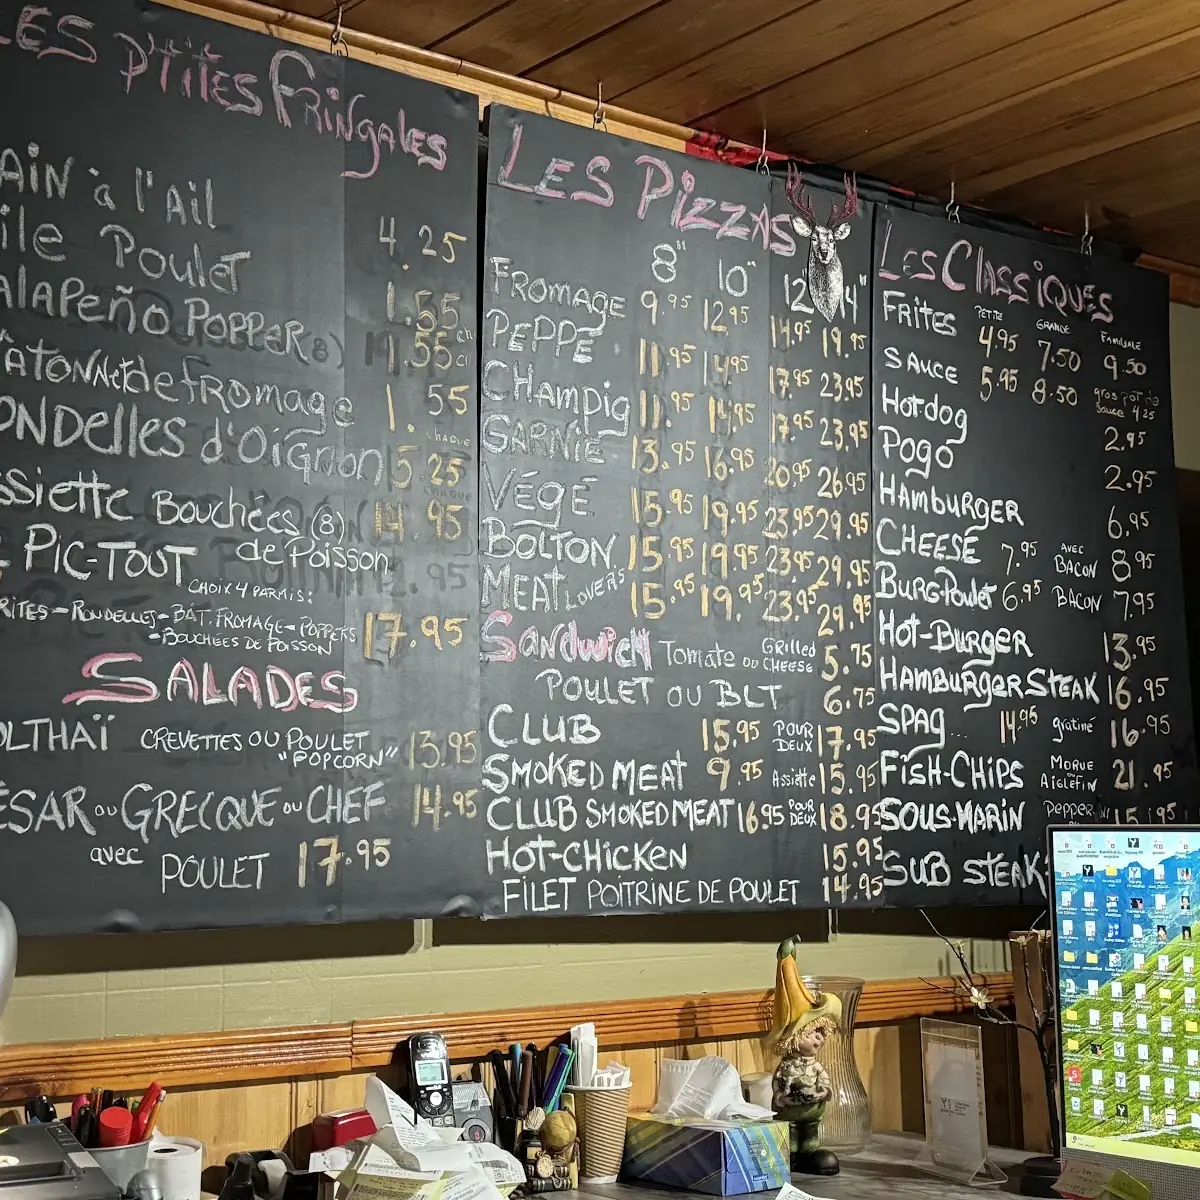 LES P'TITES FRINGALES
AIN à l'AIL 4.25
ile POULET 1.55 ch
ALAPEÑO POPPER 8) 1.55 ch
ATONNET de FROMAGE 1.55 CHAQUE
ONDELLES d'OIGNON 5.25
SSIETTE BOUCHÉES (8) de POISSON 14.95
PIC-TOUT
CHOIX 4 PARMIS:
RITES-RONDELLES-BÂT. FROMAGE-POPPERS
-BOUCHÉES DE POISSON 17.95
SALADES
OLTHAÏ CREVETTES OU POULET "POPCORN" 13.95
ÉSAR OU GRECQUE OU CHEF 14.95
avec POULET 17.95
LES PIZZAS
8" 10" 12 14"
FROMAGE 9.95 12.95 14.95 19.95
PEPPE 11.95 14.95 17.95 23.95
CHAMPIG 11.95 14.95 17.95 23.95
GARNIE 13.95 16.95 20.95 26.95
VÉGÉ 15.95 19.95 23.95 29.95
BOLTON 15.95 19.95 23.95 29.95
MEAT LOVERS 15.95 19.95 23.95 29.95
SANDWICH TOMATE OU GRILLED CHEESE 5.75
POULET OU BLT 6.75
CLUB 15.95 POUR DEUX 17.95
SMOKED MEAT 9.95 Assiette 15.95
CLUB SMOKED MEAT 16.95 POUR DEUX 18.95
HOT-CHICKEN 15.95
FILET POITRINE DE POULET 14.95
LES CLASSIQUES
PETITE GRANDE FAMILIALE
FRITES 4.95 7.50 9.50
SAUCE 5.95 8.50 gros pot de sauce 4.25
HOTDOG 2.95
POGO 2.95
HAMBURGER 6.95
CHEESE 7.95 AVEC BACON 8.95
BURG-Poulet 6.95 BACON 7.95
HOT-BURGER 13.95
HAMBURGER STEAK 16.95
SPAG 14.95 gratiné 16.95
FISH-CHIPS MORUE ou AIGLEFIN 21.95
SOUS-MARIN PEPPER
SUB STEAK